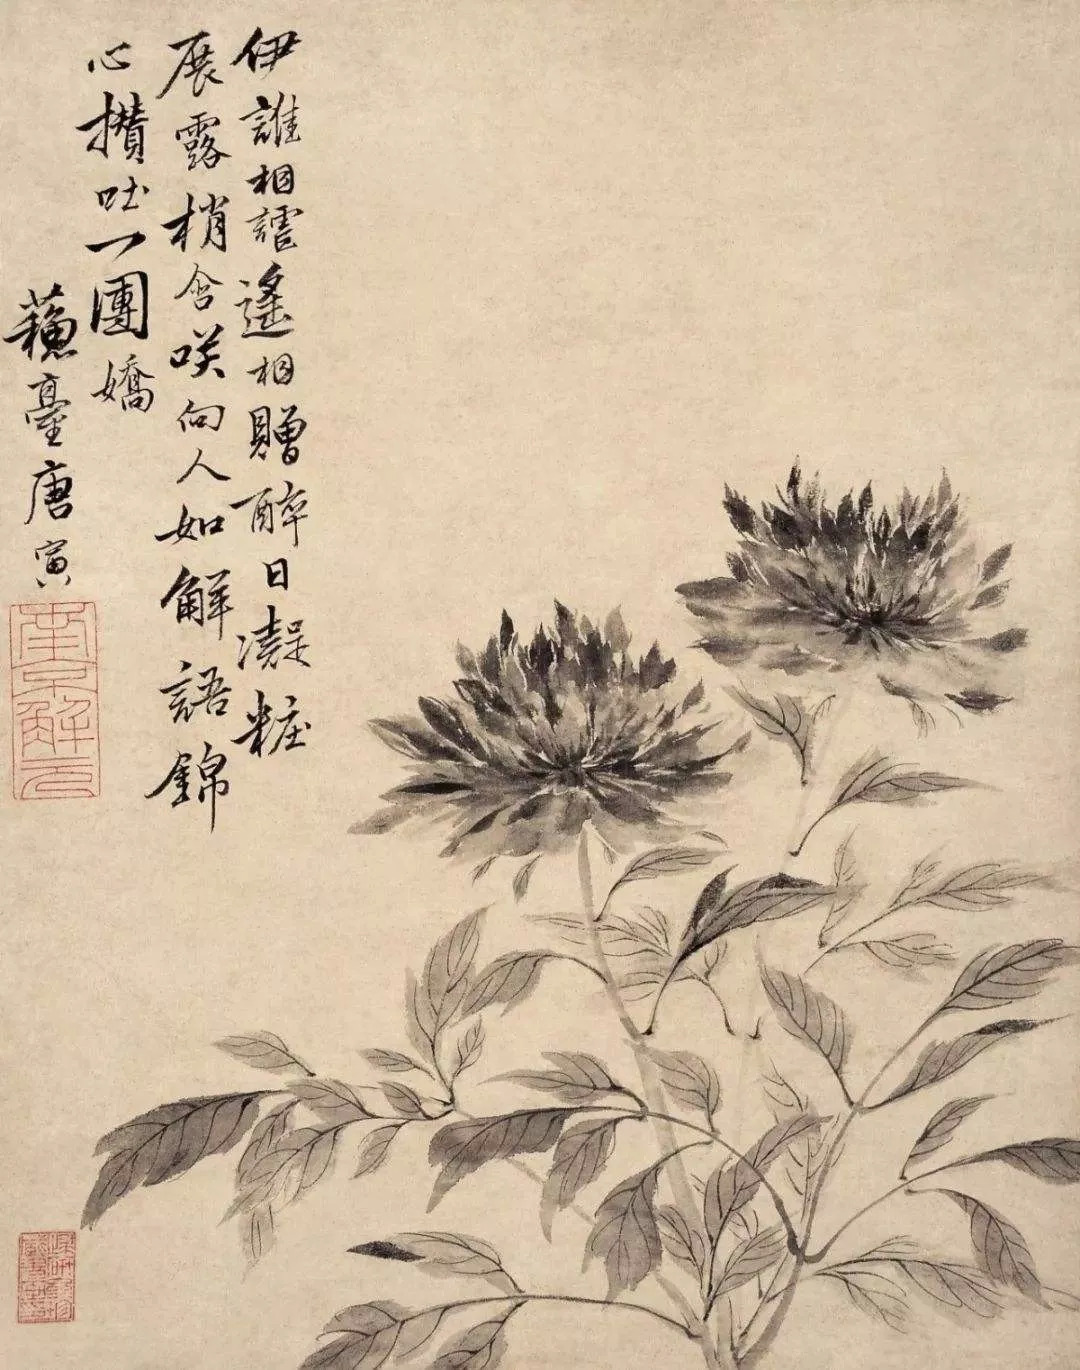 伊誰相謔遙相贈酔日凝粧
展露梢含咲向人如解語錦
心攢吐一團嬌
蘓臺唐寅
南京解元